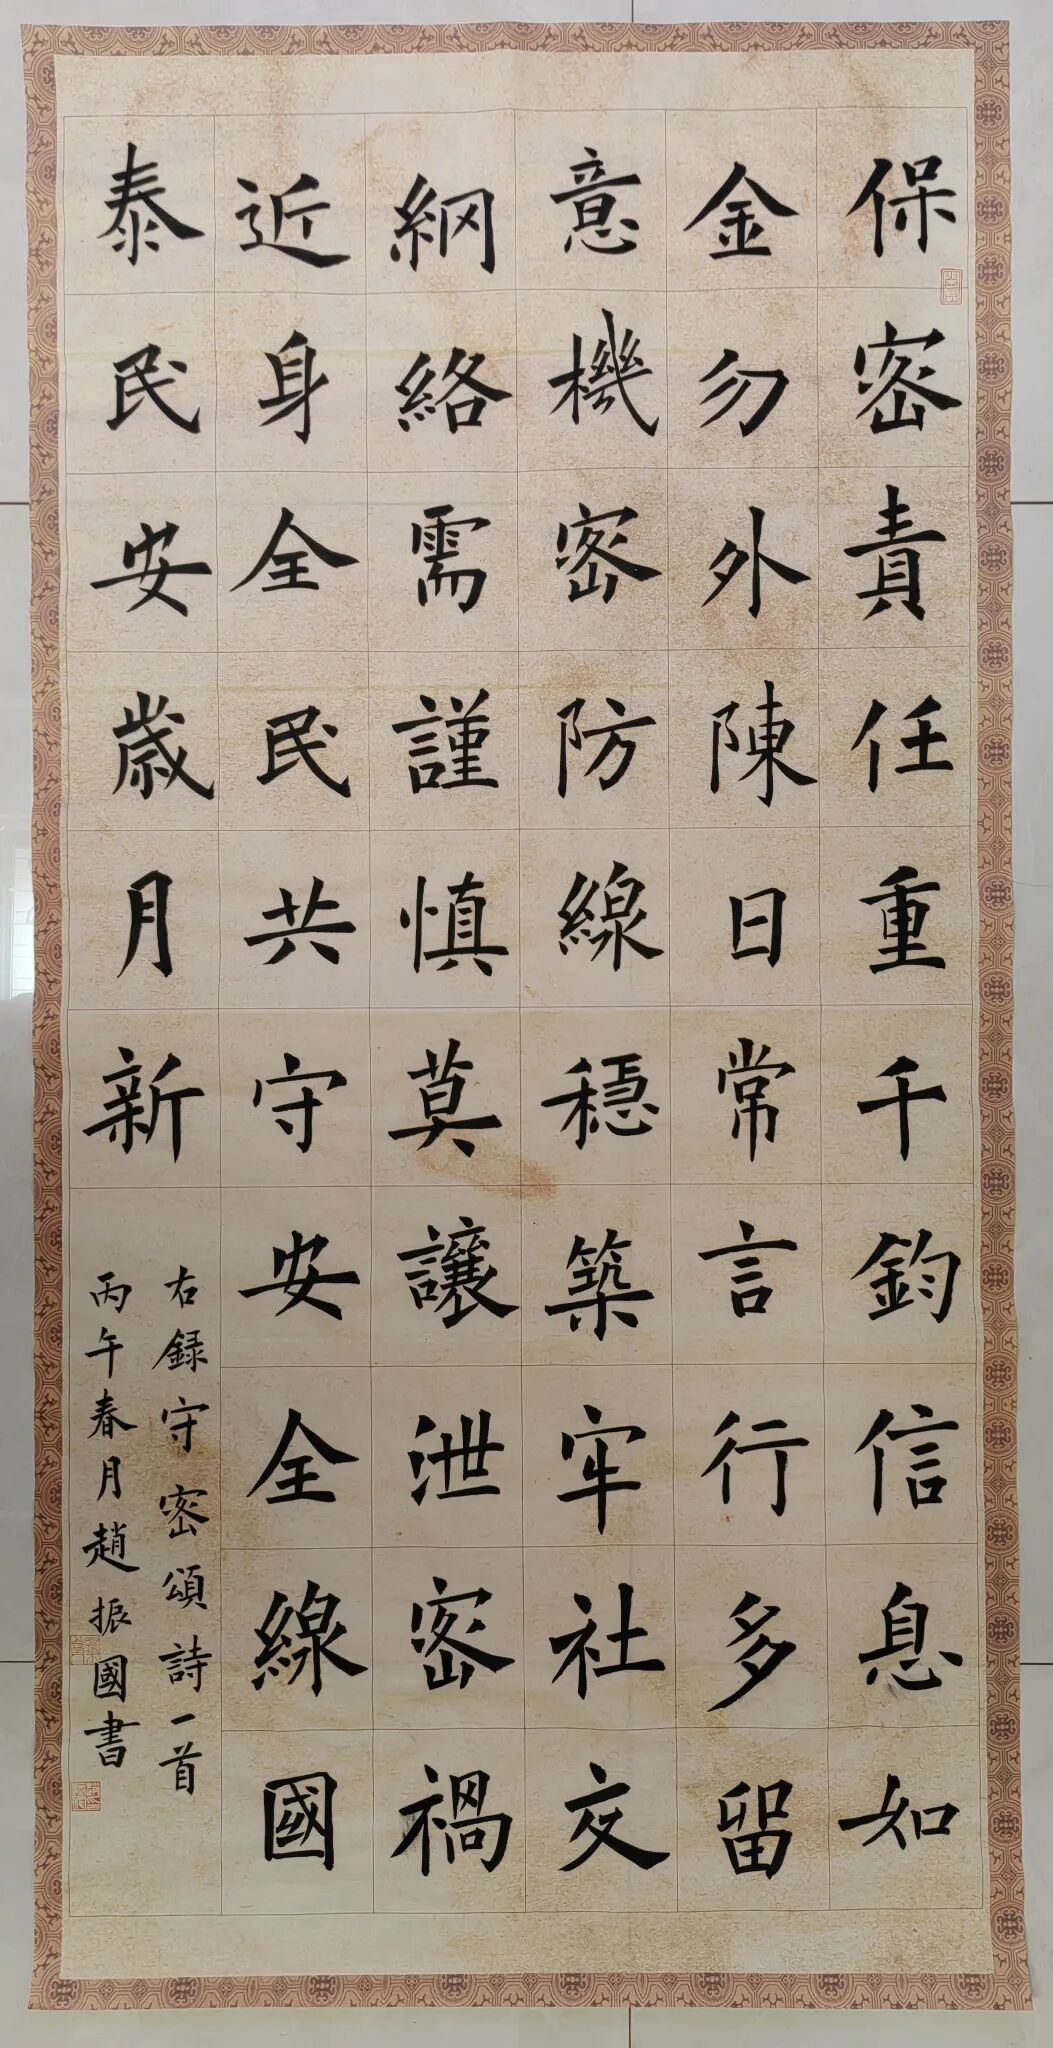 保密責任重千鈞信息如
金勿外陳日常言行多留
意機密防線穩築牢社交
網絡需謹慎莫讓泄密禍
近身全民共守安全線國
泰民安歲月新
右録守密頌詩一首
丙午春月趙振國書